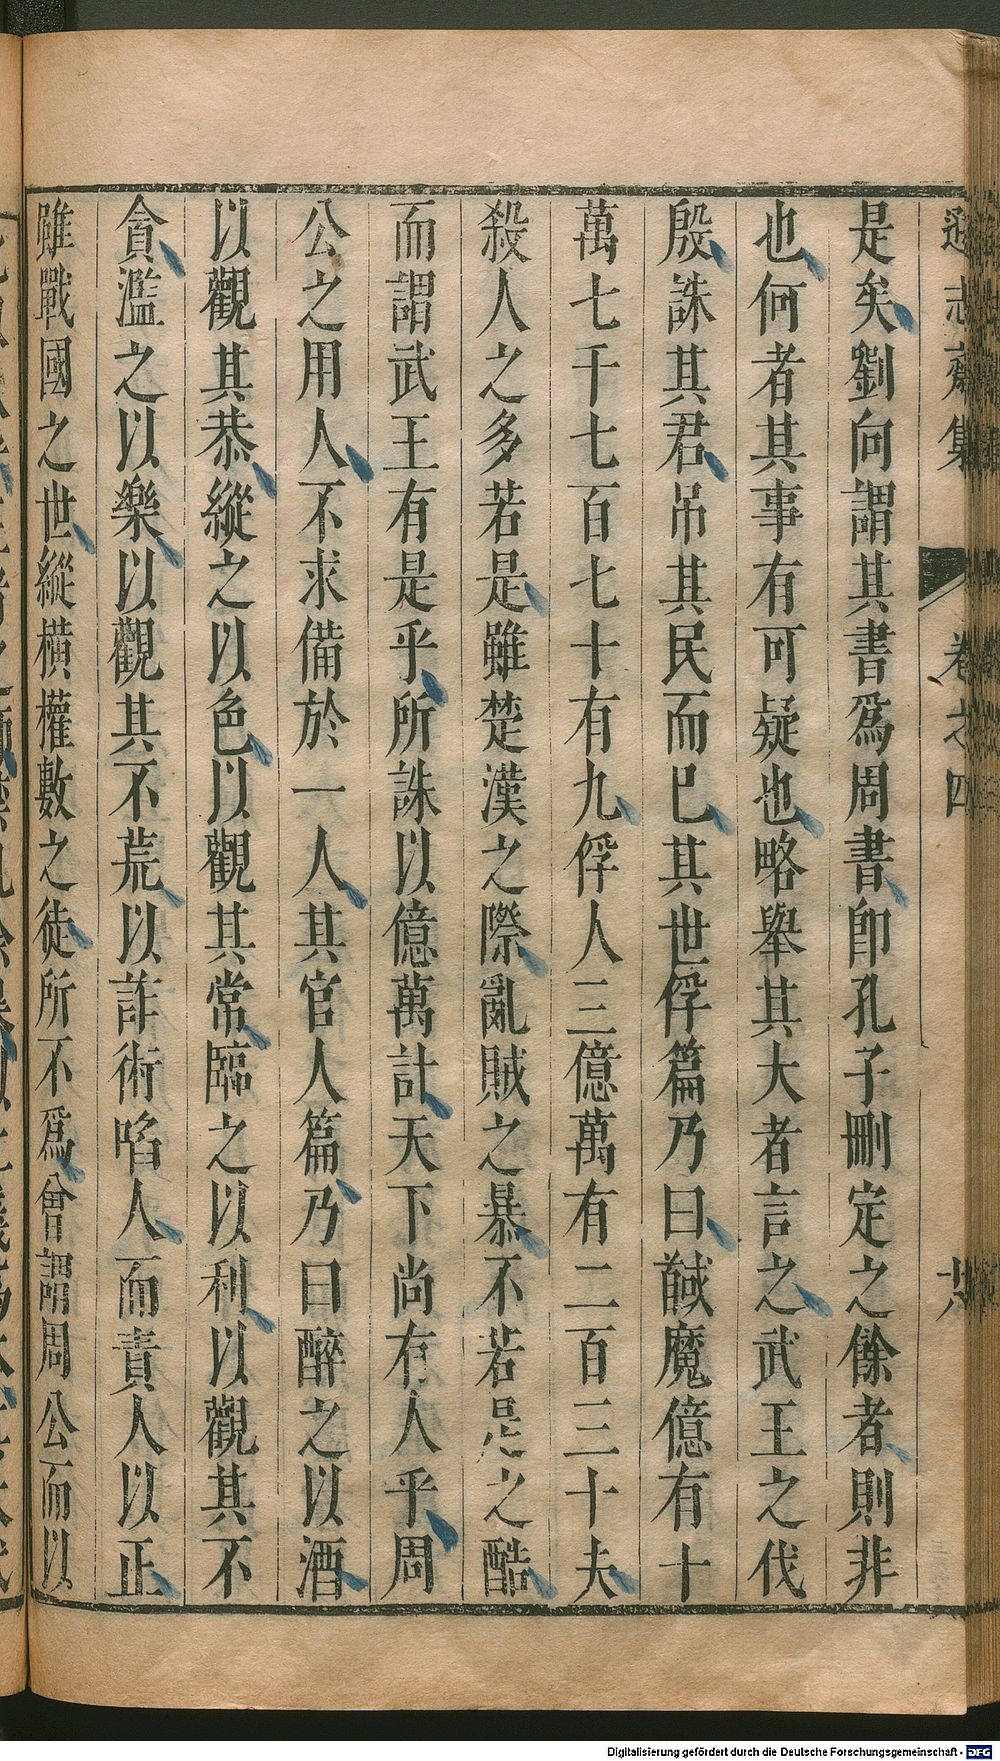 遜志齋集 卷之四 廿八
是矣劉向謂其書爲周書卽孔子刪定之餘者則非
也何者其事有可疑也略舉其大者言之武王之伐
殷誅其君吊其民而已其世俘篇乃曰馘魔億有十
萬七千七百七十有九俘人三億萬有二百三十夫
殺人之多若是雖楚漢之際亂賊之暴不若是之酷
而謂武王有是乎所誅以億萬計天下尚有人乎周
公之用人不求備於一人其官人篇乃曰醉之以酒
以觀其恭縱之以色以觀其常臨之以利以觀其不
貪濫之以樂以觀其不荒以詐術啗人而責人以正
雖戰國之世縱橫權數之徒所不爲曾謂周公而以
Digitalisierung gefördert durch die Deutsche Forschungsgemeinschaft - DFG